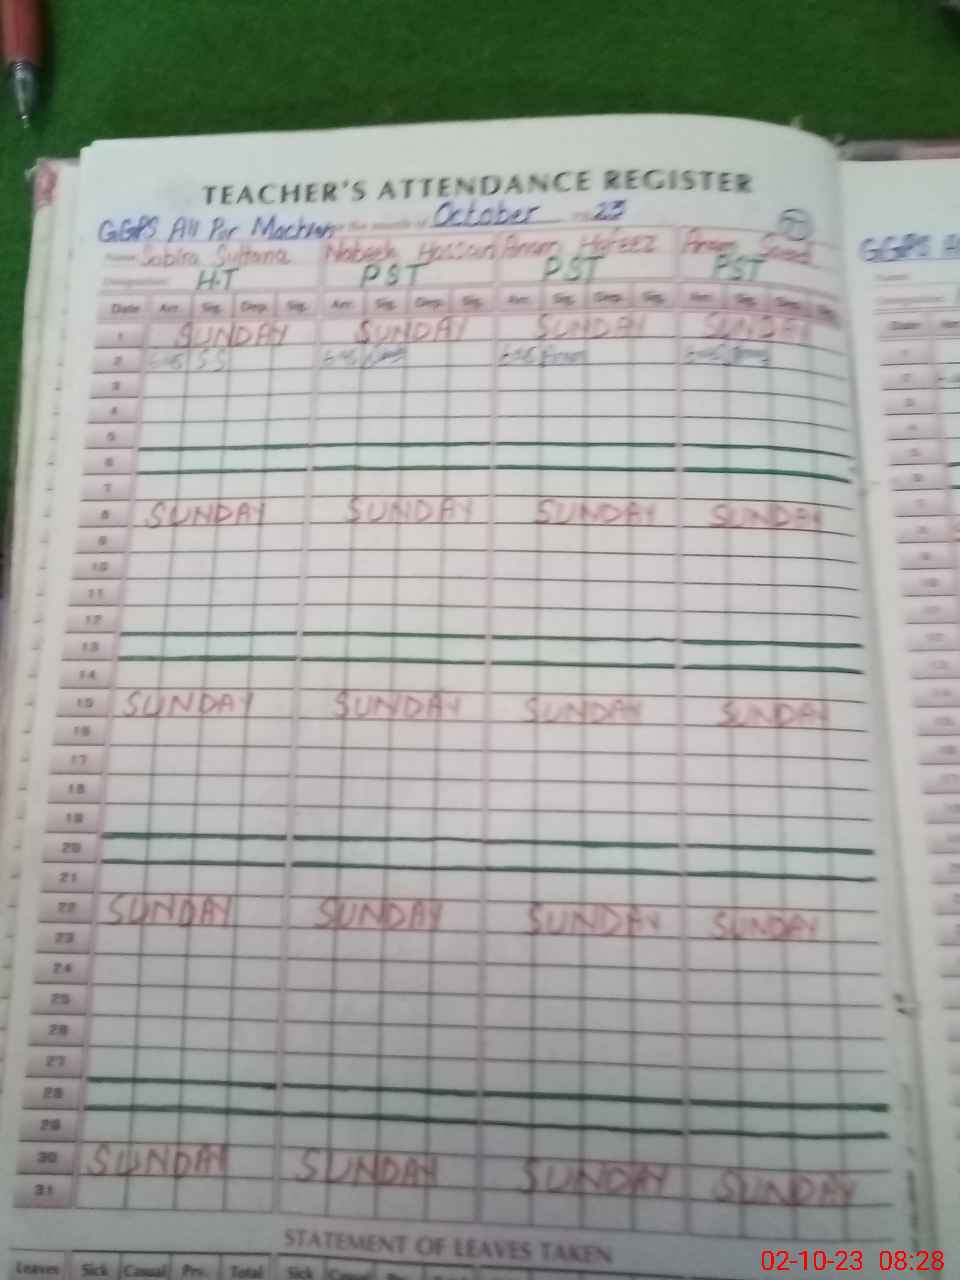 TEACHER'S ATTENDANCE REGISTER
GGPS All Pur Machian October 23
Sabira Sultana Nabeeh Hassan Anam Hafeez Anam
H.T PST PST PST
Date Arr. Sig. Dep. Sig. Arr. Sig. Dep. Sig. Arr. Sig. Dep. Sig. Arr. Sig. Dep. Sig.
1 SUNDAY SUNDAY SUNDAY SUNDAY
2 6:45 SS 6:45 6:45 Anam 6:45
3
4
5
6
7
8 SUNDAY SUNDAY SUNDAY SUNDAY
9
10
11
12
13
14
15 SUNDAY SUNDAY SUNDAY SUNDAY
16
17
18
19
20
21
22 SUNDAY SUNDAY SUNDAY SUNDAY
23
24
25
26
27
28
29
30 SUNDAY SUNDAY SUNDAY SUNDAY
31
STATEMENT OF LEAVES TAKEN
Leaves Sick Casual Prv. Total Sick Casual
GGPS
02-10-23 08:28